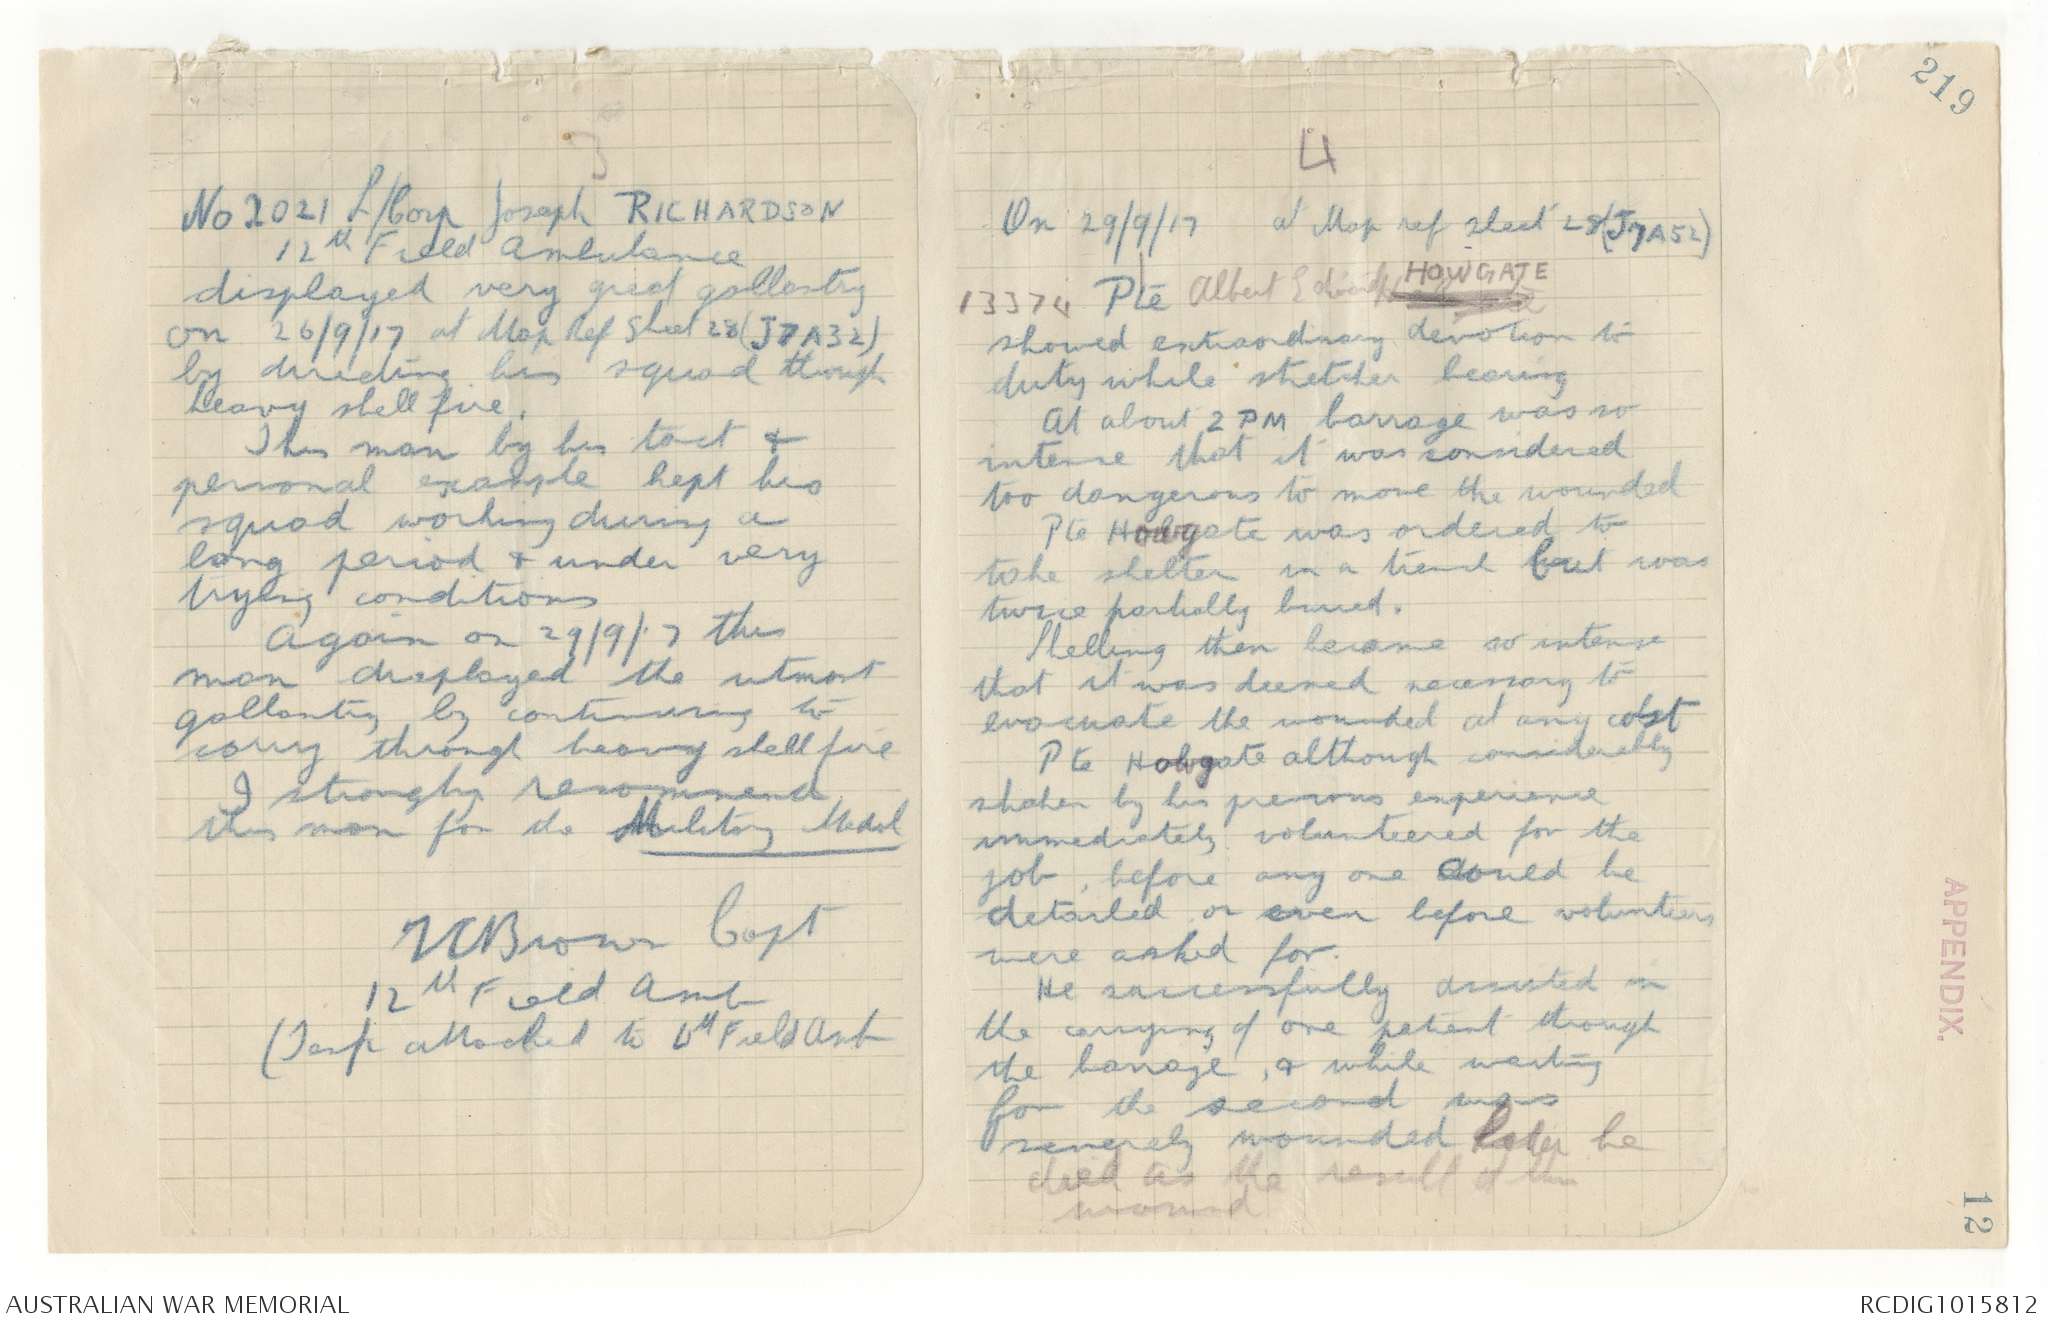 219
3
No 2021 L/Corp Joseph RICHARDSON
12th Field Ambulance
displayed very great gallantry
on 26/9/17 at Map Ref Sheet 28 (J7A32)
by directing his squad through
heavy shell fire.
This man by his tact &
personal example kept his
squad working during a
long period & under very
trying conditions
Again on 29/9/17 this
man displayed the utmost
gallantry by continuing to
carry through heavy shell fire
I strongly recommend
this man for the Military Medal
Brown Capt
12th Field Amb
(Temp attached to Field Amb
4
On 29/9/17 at Map ref sheet 28 (J7A52)
13374 Pte Albert Edward HOWGATE
showed extraordinary devotion to
duty while stretcher bearing
At about 2 PM barrage was so
intense that it was considered
too dangerous to move the wounded
Pte Howgate was ordered to
take shelter in a trench but was
twice partially buried.
Shelling then became so intense
that it was deemed necessary to
evacuate the wounded at any cost
Pte Howgate although considerably
shaken by his previous experience
immediately volunteered for the
job, before any one could be
detailed or even before volunteers
were asked for.
He successfully assisted in
the carrying of one patient through
the barrage, & while waiting
for the second was
severely wounded later he
died as the result of this
wound
APPENDIX.
12
AUSTRALIAN WAR MEMORIAL
RCDIG1015812